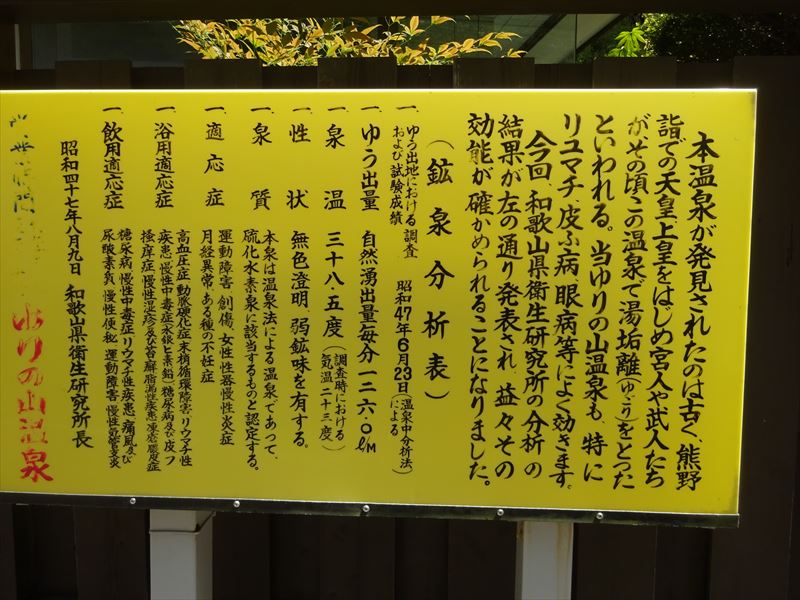 本温泉が発見されたのは古く、熊野
詣での天皇、上皇をはじめ宮人や武人たち
がその頃この温泉で湯垢離(ゆごり)をとった
といわれる。当ゆりの山温泉も、特に
リユマチ、皮ふ病、眼病等によく効きます。
今回、和歌山県衛生研究所の分析の
結果が左の通り発表され、益々その
効能が確かめられることになりました。
(鉱泉分析表)
一、ゆう出地における調査および試験成績 昭和47年6月23日(温泉中分析法)による
一、ゆう出量 自然湧出量毎分一二六・〇ℓ/M
一、泉温 三十八・五度(調査時における気温二十三度)
一、性状 無色澄明、弱鉱味を有する。
一、泉質 本泉は温泉法による温泉であって、
硫化水素泉に該当するものと認定する。
一、適応症 運動障害 創傷、女性性器慢性炎症
月経異常、ある種の不妊症
一、浴用適応症 高血圧症 動脈硬化症 末梢循環障害 リウマチ性
疾患 慢性中毒症(水銀と素鉛)糖尿病及び皮フ
掻痒症 慢性湿疹及び苔癬
一、飲用適応症 糖尿病 慢性中毒症 リウマチ性疾患 痛風及び
尿酸素質 慢性便秘 運動障害 慢性気管支炎
昭和四十七年八月九日 和歌山県衛生研究所長
ゆりの山温泉